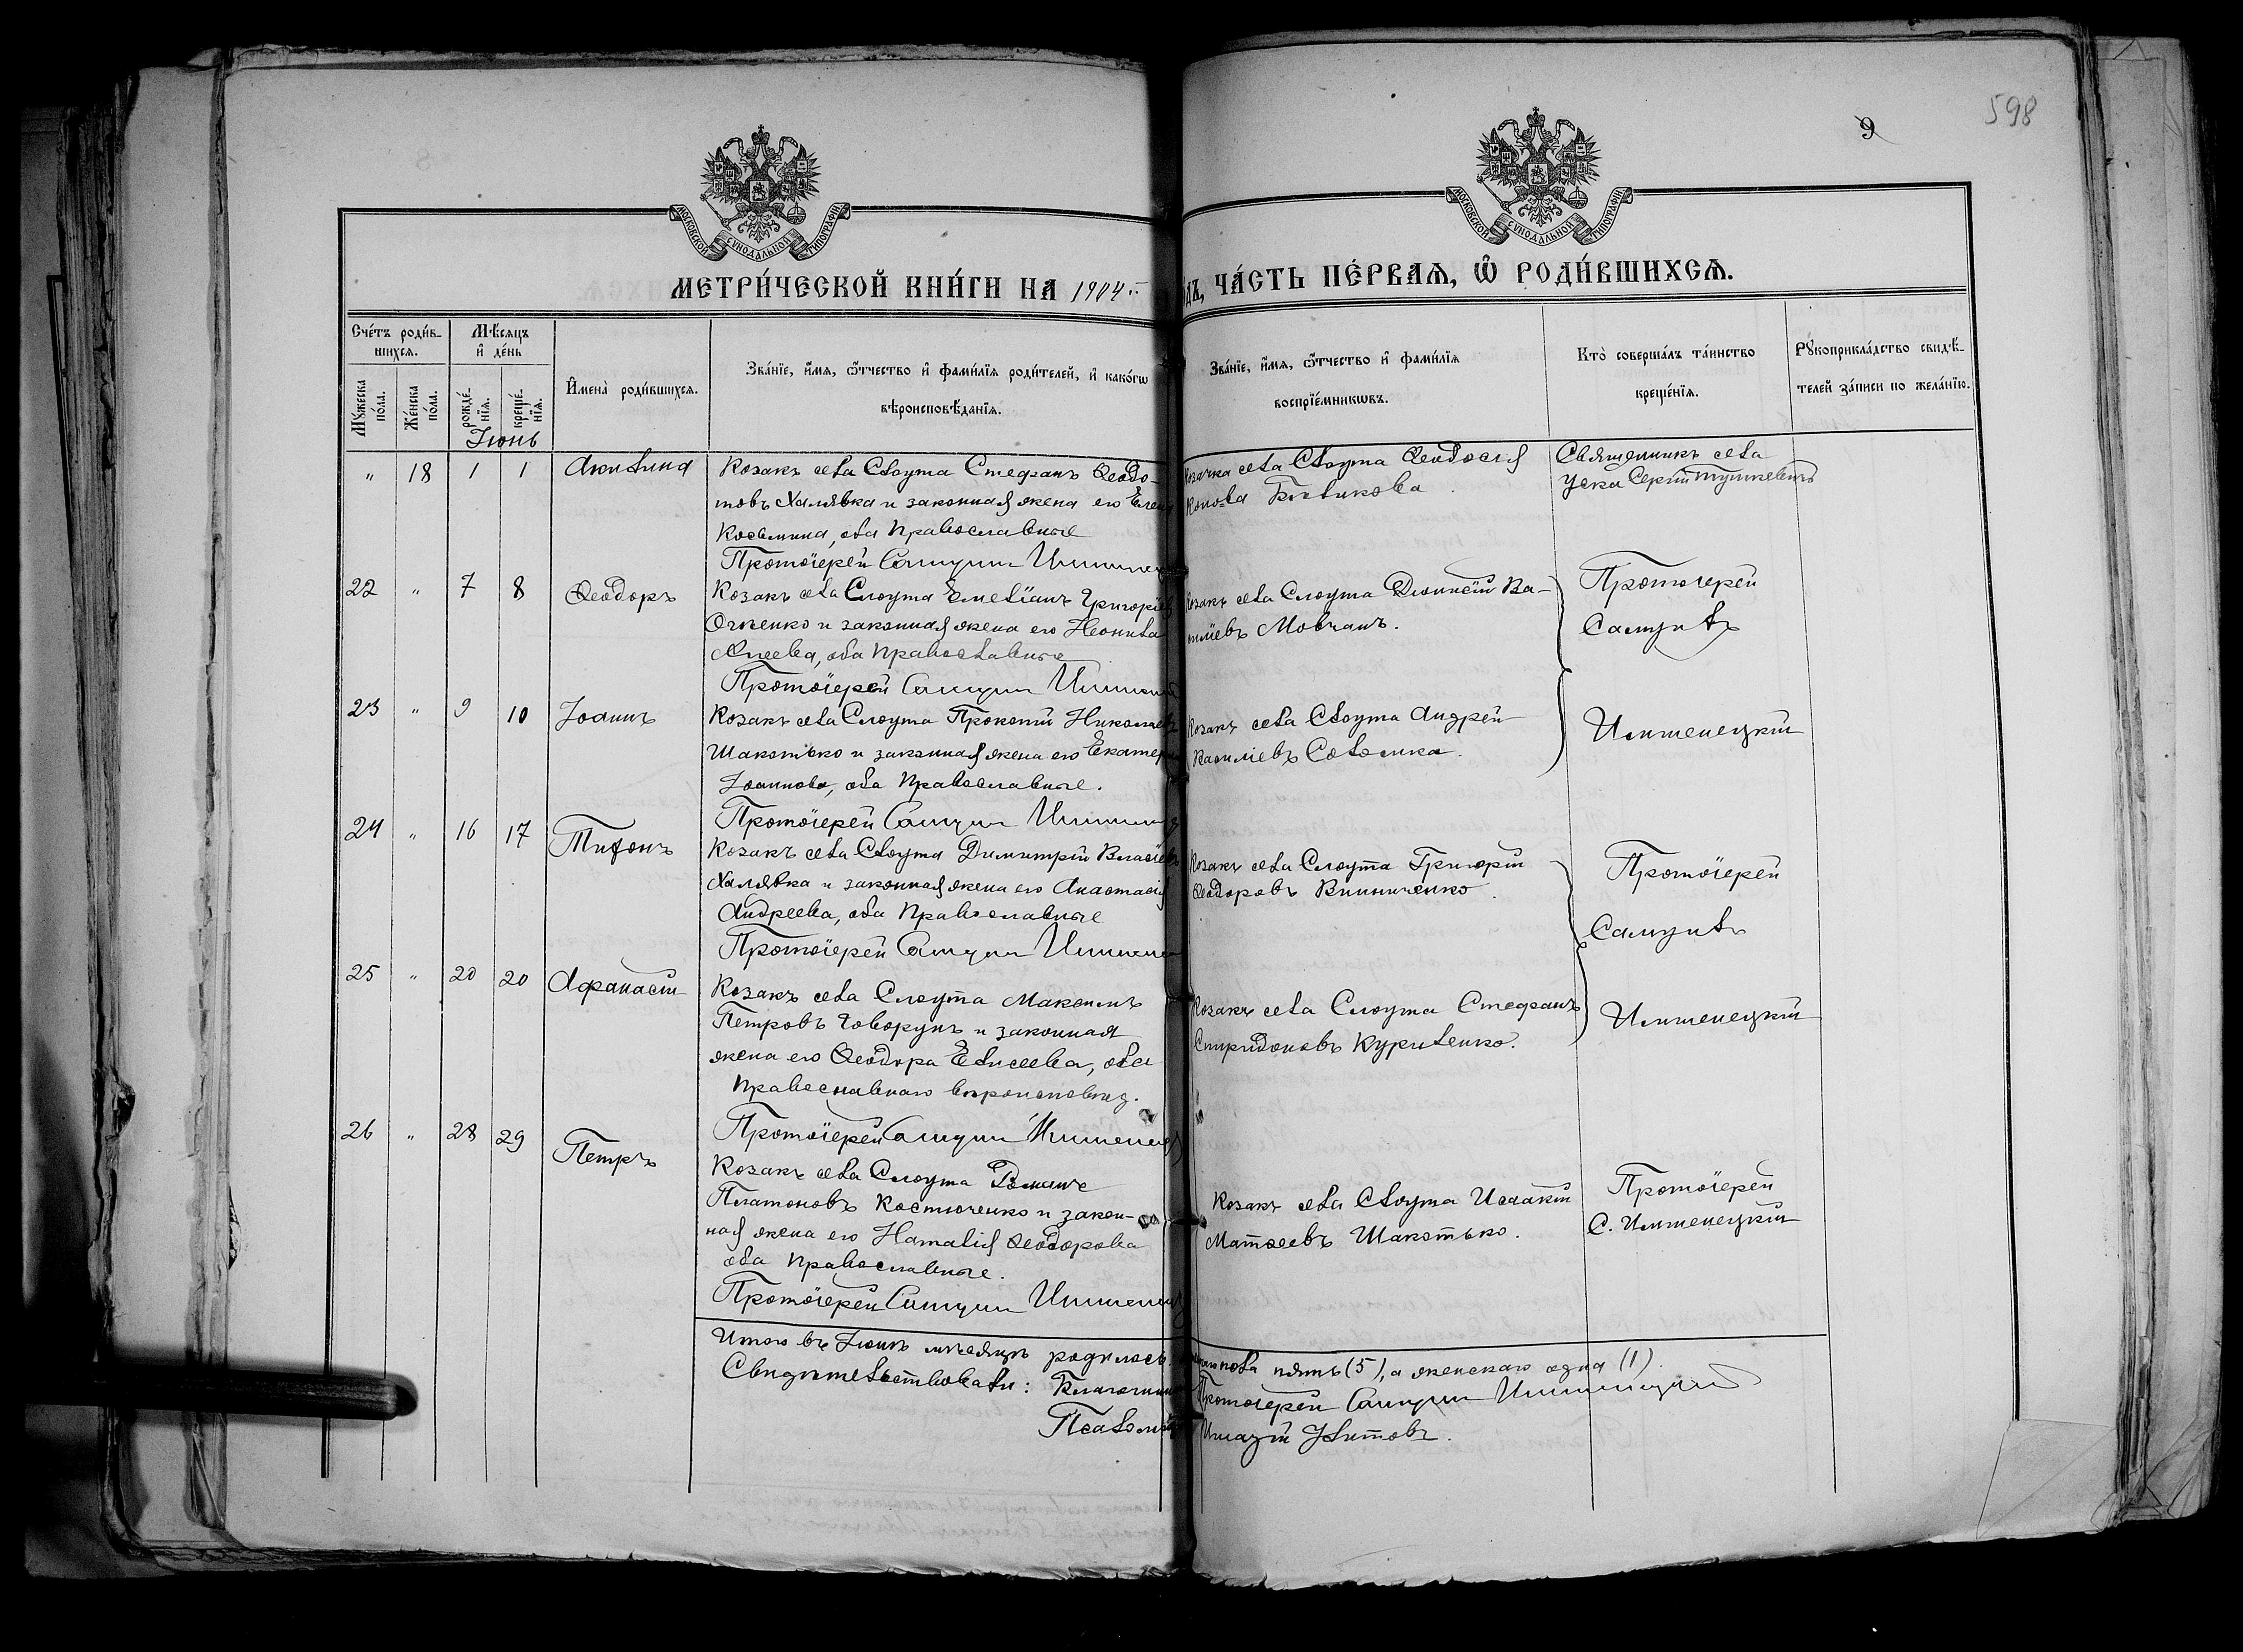 598
9
МОСКОВСКОЙ СѴНОДАЛЬНОЙ ТИПОГРАФІИ
МОСКОВСКОЙ СѴНОДАЛЬНОЙ ТИПОГРАФІИ
МЕТРИ́ЧЕСКОЙ КНИ́ГИ НА 1904 г.
ДЪ, ЧА́СТЬ ПЕ́РВАѦ, Ѽ РОДИ́ВШИХСѦ.
Сче́тъ роди́в-
шихсѧ.
Мѣ́сѧцъ
и҆ де́нь
Мꙋ́жеска по́ла.
Же́нска по́ла.
рожде́-
нїѧ.
креще́-
нїѧ.
И҆мена̀ роди́вшихсѧ.
Зва́нїе, и҆́мѧ, ѻ҆́тчество и҆ фами́лїѧ роди́телей, и҆ како́гѡ
вѣроисповѣ́данїѧ.
Зва́нїе, и҆́мѧ, ѻ҆́тчество и҆ фами́лїѧ
воспрїе́мникѡвъ.
Кто̀ соверша́лъ та́инство
креще́нїѧ.
Рꙋкоприкла́дство свидѣ́-
телей за́писи по жела́нїю.
Іюнь
" 18 1 1 Акилина
Козакъ села Слоута Стефанъ Ѳеодо-
товъ Халявка и законная жена его Елена
Косьмина, оба Православные
Протоіерей Самуил
Козачка села Слоута Ѳеодосія
Священникъ села
Уска Сергій Тушкевичъ
22 " 7 8 Ѳеодоръ
Козакъ села Слоута Емеліанъ Григоріев
и законная жена его Неонила
оба Православные
Протоіерей Самуил
Козакъ села Слоута Діонисій Ва-
Мовчанъ.
Протоіерей
Самуилъ
Имшенецкій
23 " 9 10 Іоаннъ
Козакъ села Слоута Прокопій Николаев
Шакотько и законная жена его Екатери
Іоаннова, оба Православные.
Протоіерей Самуил
Козакъ села Слоута Андрей
Василіевъ Соломка.
24 " 16 17 Тихонъ
Козакъ села Слоута Димитрій Власіевъ
Халявка и законная жена его Анастасія
Андреева, оба Православные
Протоіерей Самуил
Козакъ села Слоута Григорій
Ѳеодоровъ Винниченко.
Протоіерей
Самуилъ
Имшенецкій
25 " 20 20 Афанасій
Козакъ села Слоута Максимъ
Петровъ Говорунъ и законная
жена его Ѳеодора Елисеева, оба
Православнаго вѣроисповѣд.
Протоіерей Самуил
Козакъ села Слоута Стефанъ
Спиридоновъ Куриленко.
26 " 28 29 Петръ
Козакъ села Слоута Романъ
Платоновъ Костюченко и закон-
ная жена его Наталія Ѳеодорова
оба Православные.
Протоіерей Самуил
Козакъ села Слоута Исаакій
Матѳеевъ Шакотько.
Протоіерей
С. Имшенецкій
Итого въ Іюнѣ мѣсяцѣ родилось
пола пять (5), а женскаго одна (1).
Свидѣтельствовали:
Протоіерей Самуил Имшенецкій
Псалом